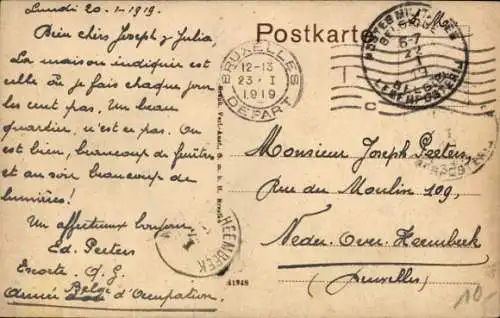 Lundi 20-1-1919.
Bien chers Joseph & Julia,
La maison indiquée est
celle où je fais chaque jour
les cent pas. Un beau
quartier, n'est ce pas. On
est bien, beaucoup de fenêtres
et au soir beaucoup de
lumières!
Un affectueux bonjour,
Ed. Peeters
Escorte. Q. G.
Armée Belge d'Occupation.
Postkarte
BRUXELLES
12-13
23 · I
1919
DEPART
6-7
22
I
19
BELGIE
LEGERPOSTERIJ
Monsieur Joseph Peeters,
Rue du Moulin 109,
Neder-Over-Heembeek
(Bruxelles)
HEEMBEEK
41948
10-